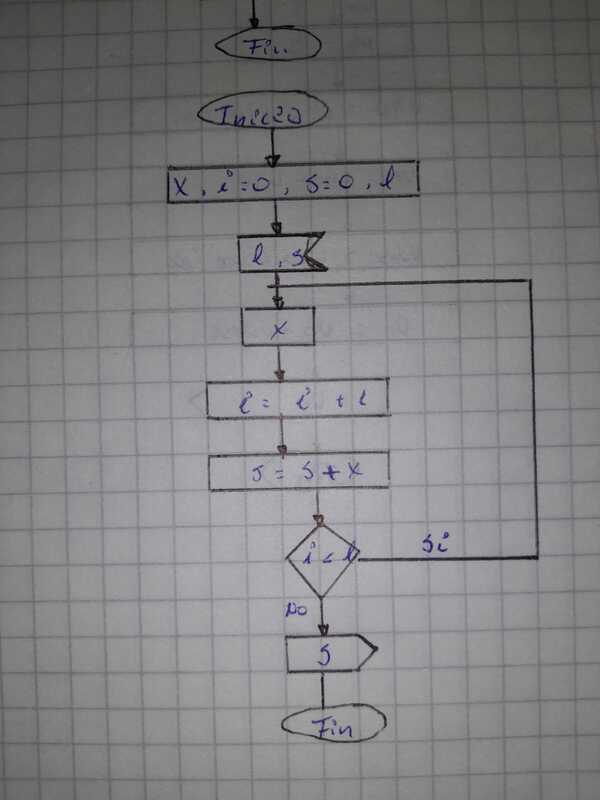 Fin
Inicio
x, i=0, s=0, l
l, s
x
i = i + l
s = s + x
i < l
Si
No
S
Fin